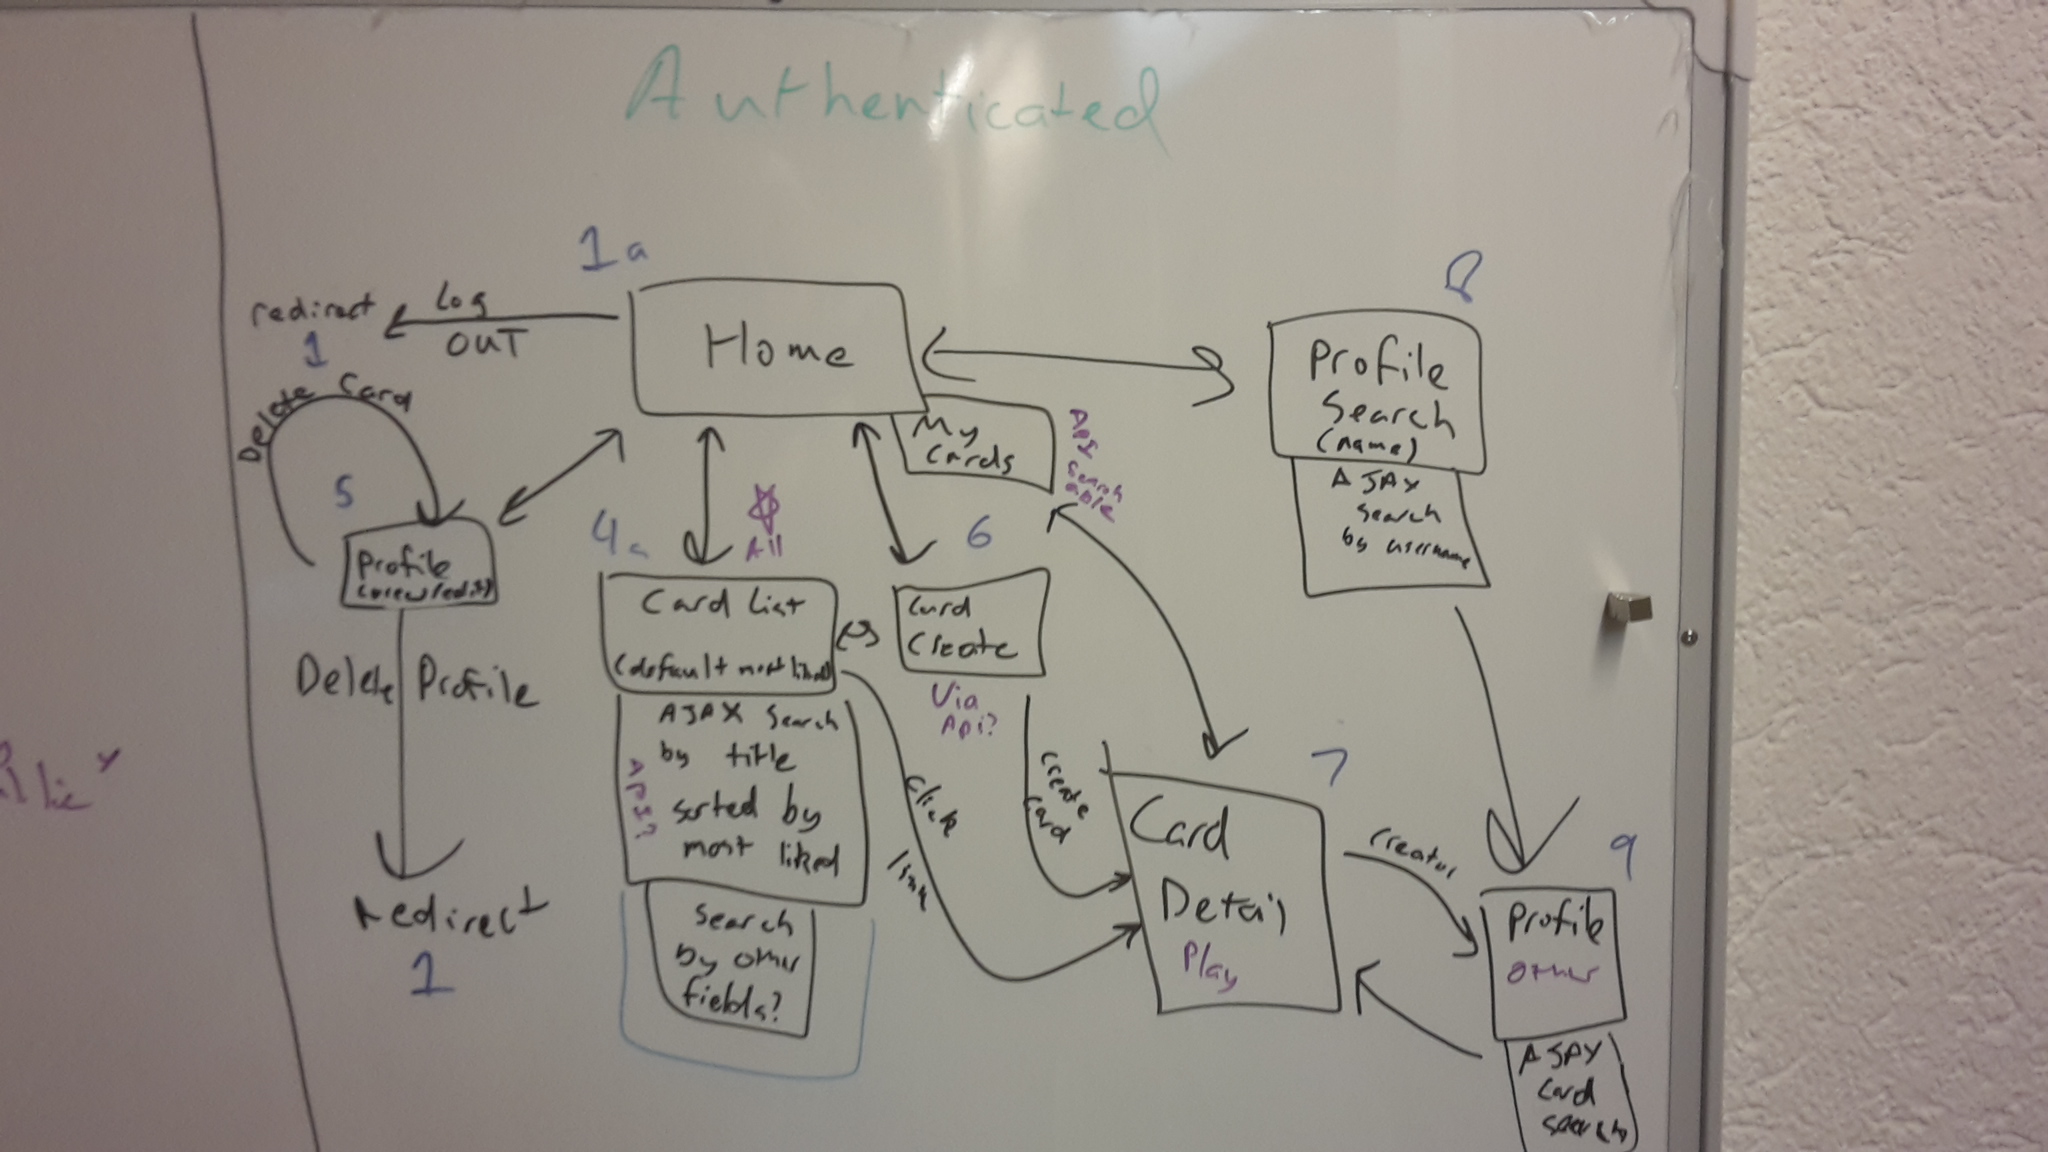 Authenticated
1a
redirect
1
Log
OUT
Home
My
Cards
API
search
able
8
Profile
Search
(name)
AJAX
search
by username
Delete Card
5
Profile
(view/edit)
Delete Profile
redirect
1
4a
All
Card List
(default most liked)
AJAX search
by title
sorted by
most liked
API?
search
by other
fields?
6
Card
Create
Via
Api?
click
link
create
card
7
Card
Detail
Play
creator
9
Profile
other
AJAX
Card
search